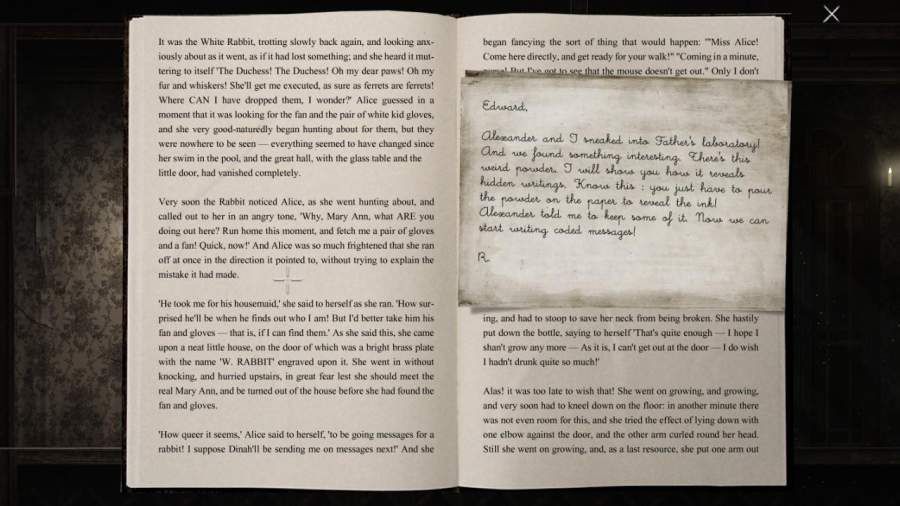 It was the White Rabbit, trotting slowly back again, and looking anx-
iously about as it went, as if it had lost something; and she heard it mut-
tering to itself 'The Duchess! The Duchess! Oh my dear paws! Oh my
fur and whiskers! She'll get me executed, as sure as ferrets are ferrets!
Where CAN I have dropped them, I wonder?' Alice guessed in a
moment that it was looking for the fan and the pair of white kid gloves,
and she very good-naturedly began hunting about for them, but they
were nowhere to be seen — everything seemed to have changed since
her swim in the pool, and the great hall, with the glass table and the
little door, had vanished completely.
Very soon the Rabbit noticed Alice, as she went hunting about, and
called out to her in an angry tone, 'Why, Mary Ann, what ARE you
doing out here? Run home this moment, and fetch me a pair of gloves
and a fan! Quick, now!' And Alice was so much frightened that she ran
off at once in the direction it pointed to, without trying to explain the
mistake it had made.
'He took me for his housemaid,' she said to herself as she ran. 'How sur-
prised he'll be when he finds out who I am! But I'd better take him his
fan and gloves — that is, if I can find them.' As she said this, she came
upon a neat little house, on the door of which was a bright brass plate
with the name 'W. RABBIT' engraved upon it. She went in without
knocking, and hurried upstairs, in great fear lest she should meet the
real Mary Ann, and be turned out of the house before she had found the
fan and gloves.
'How queer it seems,' Alice said to herself, 'to be going messages for a
rabbit! I suppose Dinah'll be sending me on messages next!' And she
began fancying the sort of thing that would happen: '"Miss Alice!
Come here directly, and get ready for your walk!" "Coming in a minute,
But I've got to see that the mouse doesn't get out." Only I don't
Edward,
Alexander and I sneaked into Father's laboratory!
And we found something interesting. There's this
weird powder. I will show you how it reveals
hidden writings. Know this : you just have to pour
the powder on the paper to reveal the ink!
Alexander told me to keep some of it. Now we can
start writing coded messages!
R.
ing, and had to stoop to save her neck from being broken. She hastily
put down the bottle, saying to herself 'That's quite enough — I hope I
shan't grow any more — As it is, I can't get out at the door — I do wish
I hadn't drunk quite so much!'
Alas! it was too late to wish that! She went on growing, and growing,
and very soon had to kneel down on the floor: in another minute there
was not even room for this, and she tried the effect of lying down with
one elbow against the door, and the other arm curled round her head.
Still she went on growing, and, as a last resource, she put one arm out